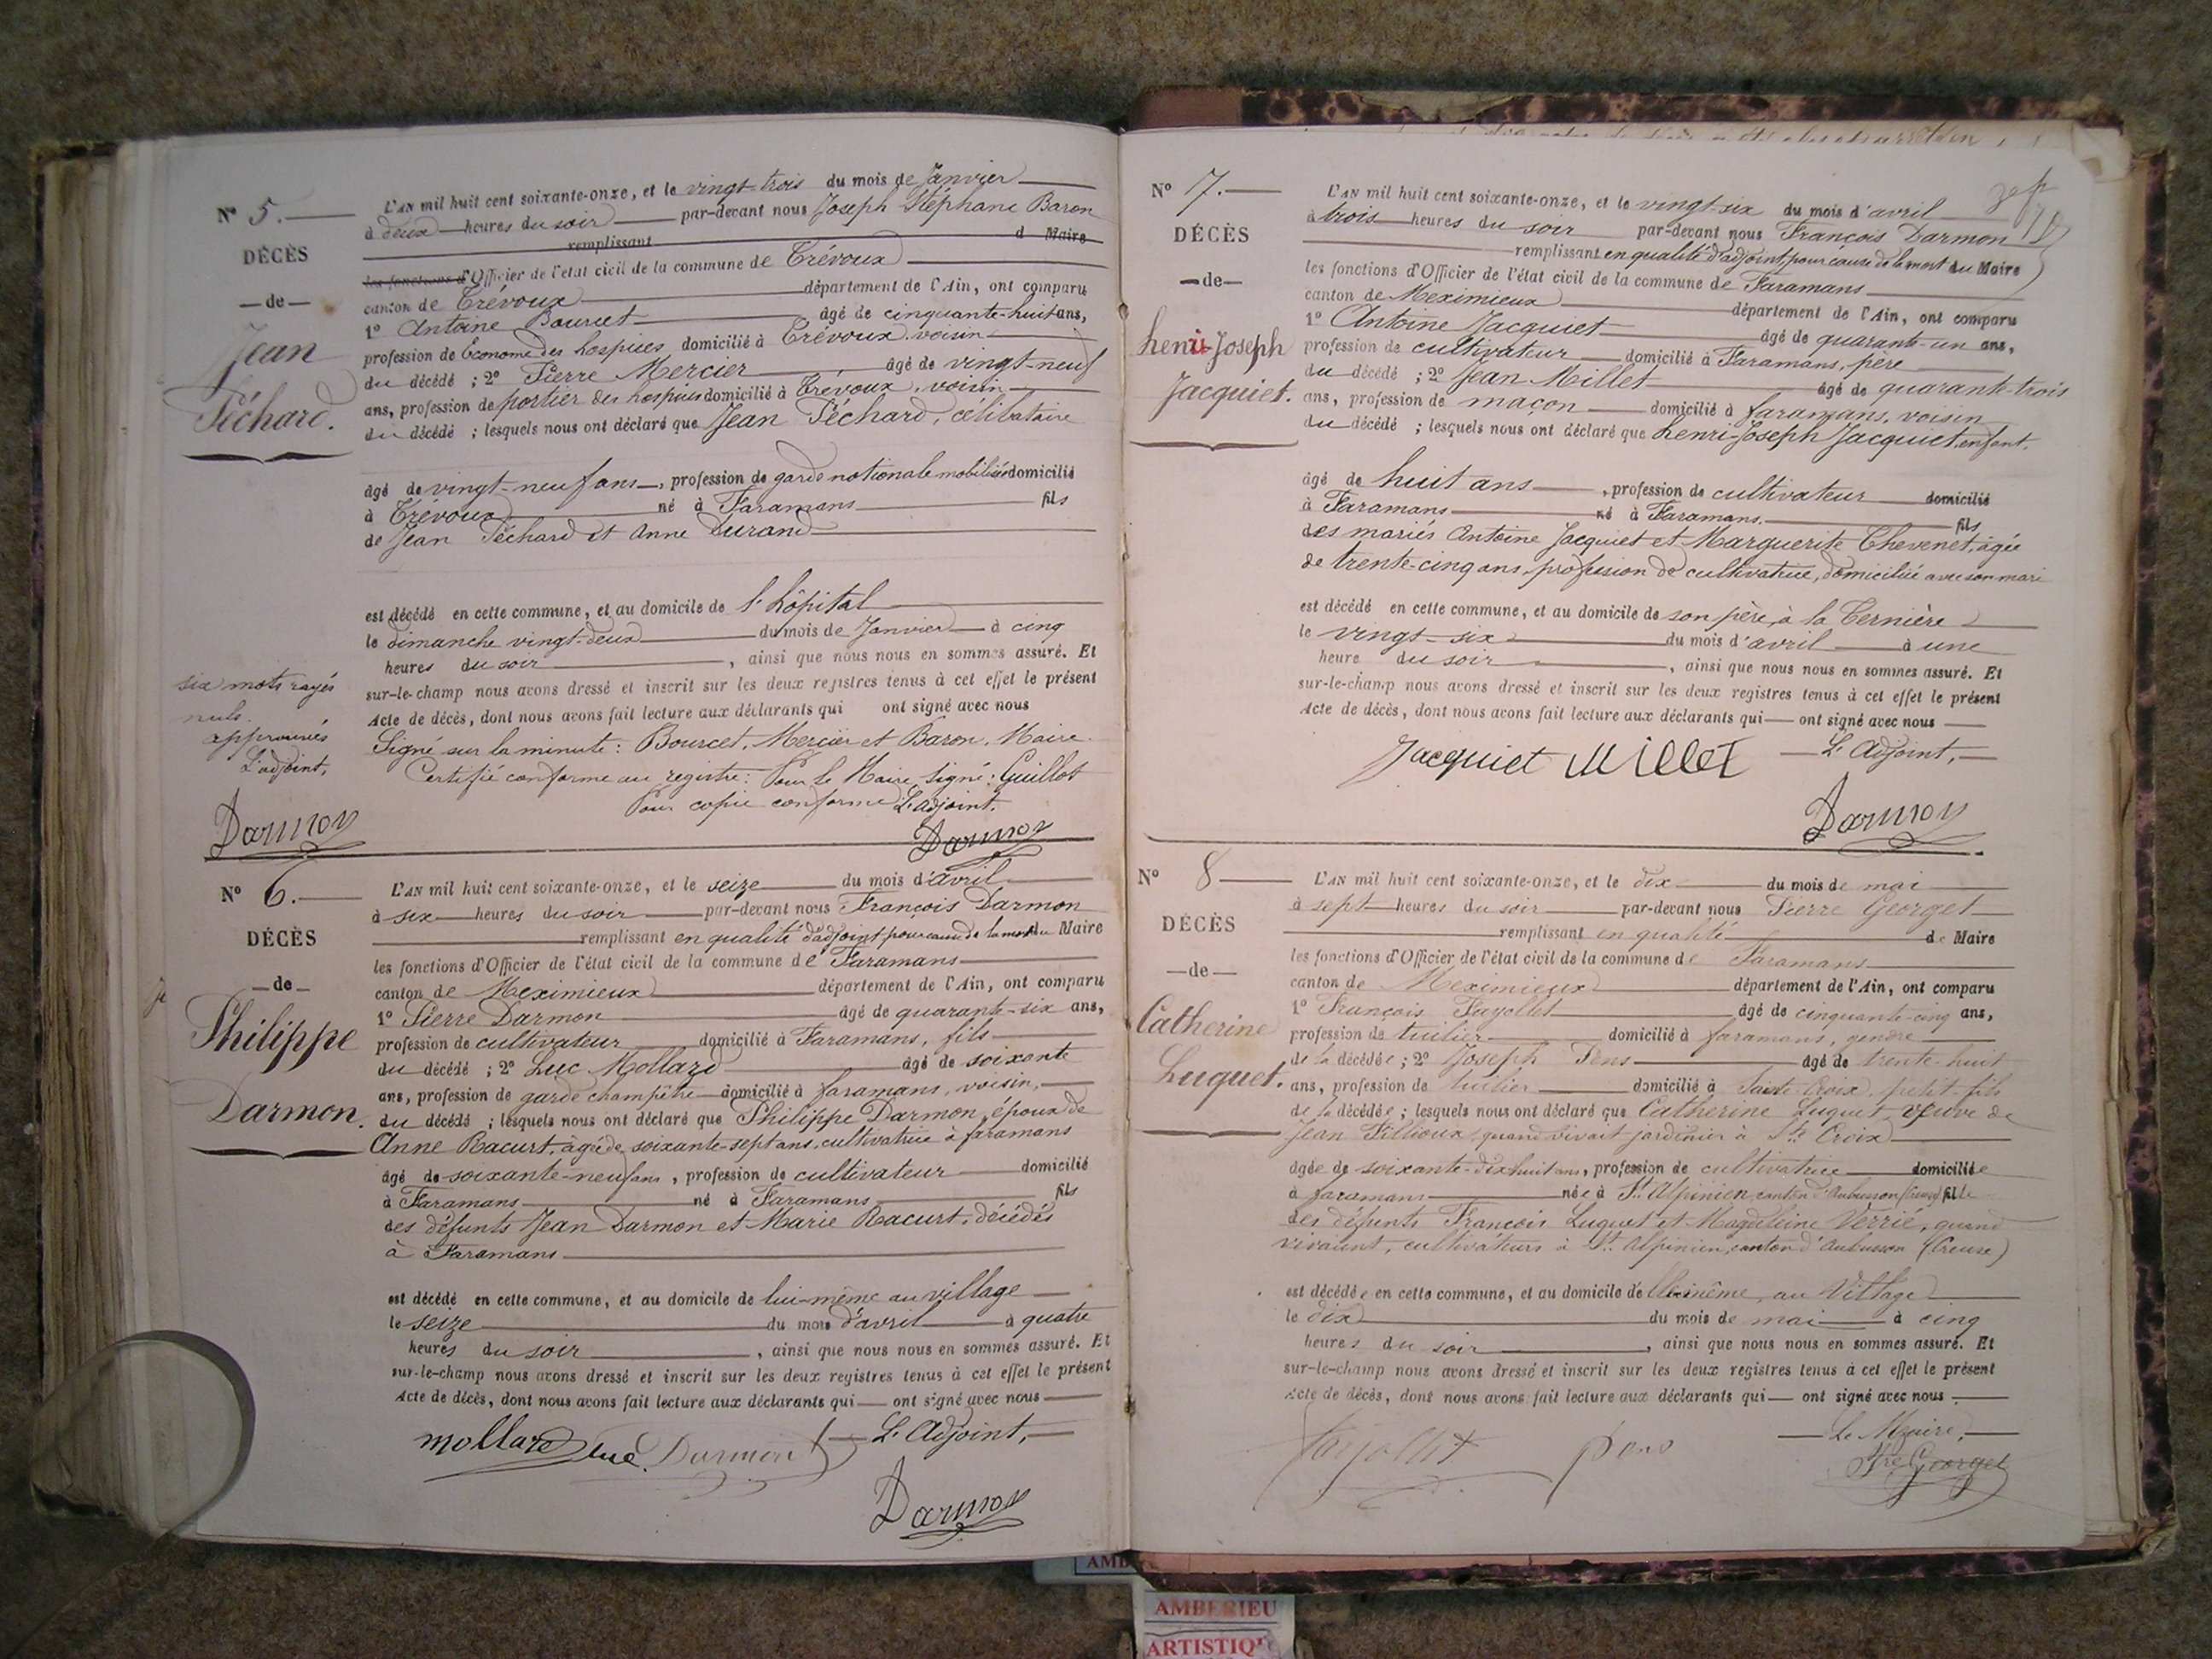 N° 5.
DÉCÈS
de
Jean
Péchard.
L'AN mil huit cent soixante-onze, et le vingt-trois du mois de Janvier
à deux heures du soir par-devant nous Joseph Stéphane Baron
remplissant d Maire
les fonctions d'Officier de l'état civil de la commune de Trévoux
canton de Trévoux département de l'Ain, ont comparu
1° Antoine Bourcet âgé de cinquante-huit ans,
profession de Économe des hospices domicilié à Trévoux voisin
du décédé ; 2° Pierre Mercier âgé de vingt-neuf
ans, profession de portier des hospices domicilié à Trévoux, voisin
du décédé ; lesquels nous ont déclaré que Jean Péchard, célibataire
âgé de vingt-neuf ans, profession de garde nationale mobilisé domicilié
à Trévoux né à Faramans fils
de Jean Péchard et Anne Durand
est décédé en cette commune, et au domicile de l'hôpital
le dimanche vingt-deux du mois de Janvier à cinq
heures du soir, ainsi que nous nous en sommes assuré. Et
sur-le-champ nous avons dressé et inscrit sur les deux registres tenus à cet effet le présent
Acte de décès, dont nous avons fait lecture aux déclarants qui ont signé avec nous
Signé sur la minute : Bourcet, Mercier et Baron, Maire.
Certifié conforme au registre : Pour le Maire, signé : Guillot
Pour copie conforme L'adjoint.
Darmon
six mots rayés
nuls.
approuvés
L'adjoint,
Darmon
N° 6.
DÉCÈS
de
Philippe
Darmon.
L'AN mil huit cent soixante-onze, et le seize du mois d'avril
à six heures du soir par-devant nous François Darmon
remplissant en qualité d'adjoint pour cause de la mort du Maire
les fonctions d'Officier de l'état civil de la commune de Faramans
canton de Meximieux département de l'Ain, ont comparu
1° Pierre Darmon âgé de quarante-six ans,
profession de cultivateur domicilié à Faramans, fils
du décédé ; 2° Luc Mollard âgé de soixante
ans, profession de garde champêtre domicilié à faramans, voisin,
du décédé ; lesquels nous ont déclaré que Philippe Darmon, époux de
Anne Racurt, âgée de soixante-sept ans, cultivatrice à faramans
âgé de soixante-neuf ans, profession de cultivateur domicilié
à Faramans né à Faramans fils
des défunts Jean Darmon et Marie Racurt, décédés
à Faramans
est décédé en cette commune, et au domicile de lui-même au village
le seize du mois d'avril à quatre
heures du soir, ainsi que nous nous en sommes assuré. Et
sur-le-champ nous avons dressé et inscrit sur les deux registres tenus à cet effet le présent
Acte de décès, dont nous avons fait lecture aux déclarants qui ont signé avec nous
mollard luc Darmon L'Adjoint,
Darmon
N° 7.
DÉCÈS
de
henri-Joseph
Jacquiet.
L'AN mil huit cent soixante-onze, et le vingt-six du mois d'avril
à trois heures du soir par-devant nous François Darmon
remplissant en qualité d'adjoint pour cause de la mort du Maire
les fonctions d'Officier de l'état civil de la commune de Faramans
canton de Meximieux département de l'Ain, ont comparu
1° Antoine Jacquiet âgé de quarante-un ans,
profession de cultivateur domicilié à Faramans, père
du décédé ; 2° Jean Millet âgé de quarante-trois
ans, profession de maçon domicilié à faramans, voisin
du décédé ; lesquels nous ont déclaré que henri-Joseph Jacquiet, enfant.
âgé de huit ans, profession de cultivateur domicilié
à Faramans né à Faramans. fils
des mariés Antoine Jacquiet et Marguerite Thevenet, âgée
de trente-cinq ans, profession de cultivatrice, domiciliée avec son mari
est décédé en cette commune, et au domicile de son père, à la Ternière
le vingt-six du mois d'avril à une
heure du soir, ainsi que nous nous en sommes assuré. Et
sur-le-champ nous avons dressé et inscrit sur les deux registres tenus à cet effet le présent
Acte de décès, dont nous avons fait lecture aux déclarants qui ont signé avec nous
Jacquiet Millet L'Adjoint,
Darmon
N° 8
DÉCÈS
de
Catherine
Luquet.
L'AN mil huit cent soixante-onze, et le dix du mois de mai
à sept heures du soir par-devant nous Pierre Georget
remplissant en qualité de Maire
les fonctions d'Officier de l'état civil de la commune de Faramans
canton de Meximieux département de l'Ain, ont comparu
1° François Fayollet âgé de cinquante-cinq ans,
profession de tuilier domicilié à faramans, gendre
de la décédée ; 2° Joseph Pens âgé de trente-huit
ans, profession de tuilier domicilié à Sainte-Croix, petit-fils
de la décédée ; lesquels nous ont déclaré que Catherine Luquet, veuve de
Jean Fillioux, quand vivait jardinier à Ste Croix
âgée de soixante-dix-huit ans, profession de cultivatrice domiciliée
à faramans née à St Alpinien, canton d'Aubusson (Creuse) fille
des défunts François Luquet et Magdeleine Verrié, quand
vivaient, cultivateurs à St Alpinien, canton d'Aubusson (Creuse)
est décédée en cette commune, et au domicile d'elle-même, au Village
le dix du mois de mai à cinq
heures du soir, ainsi que nous nous en sommes assuré. Et
sur-le-champ nous avons dressé et inscrit sur les deux registres tenus à cet effet le présent
Acte de décès, dont nous avons fait lecture aux déclarants qui ont signé avec nous
Le Maire,
Fayollet pens Georget
AMBERIEU
ARTISTIQ